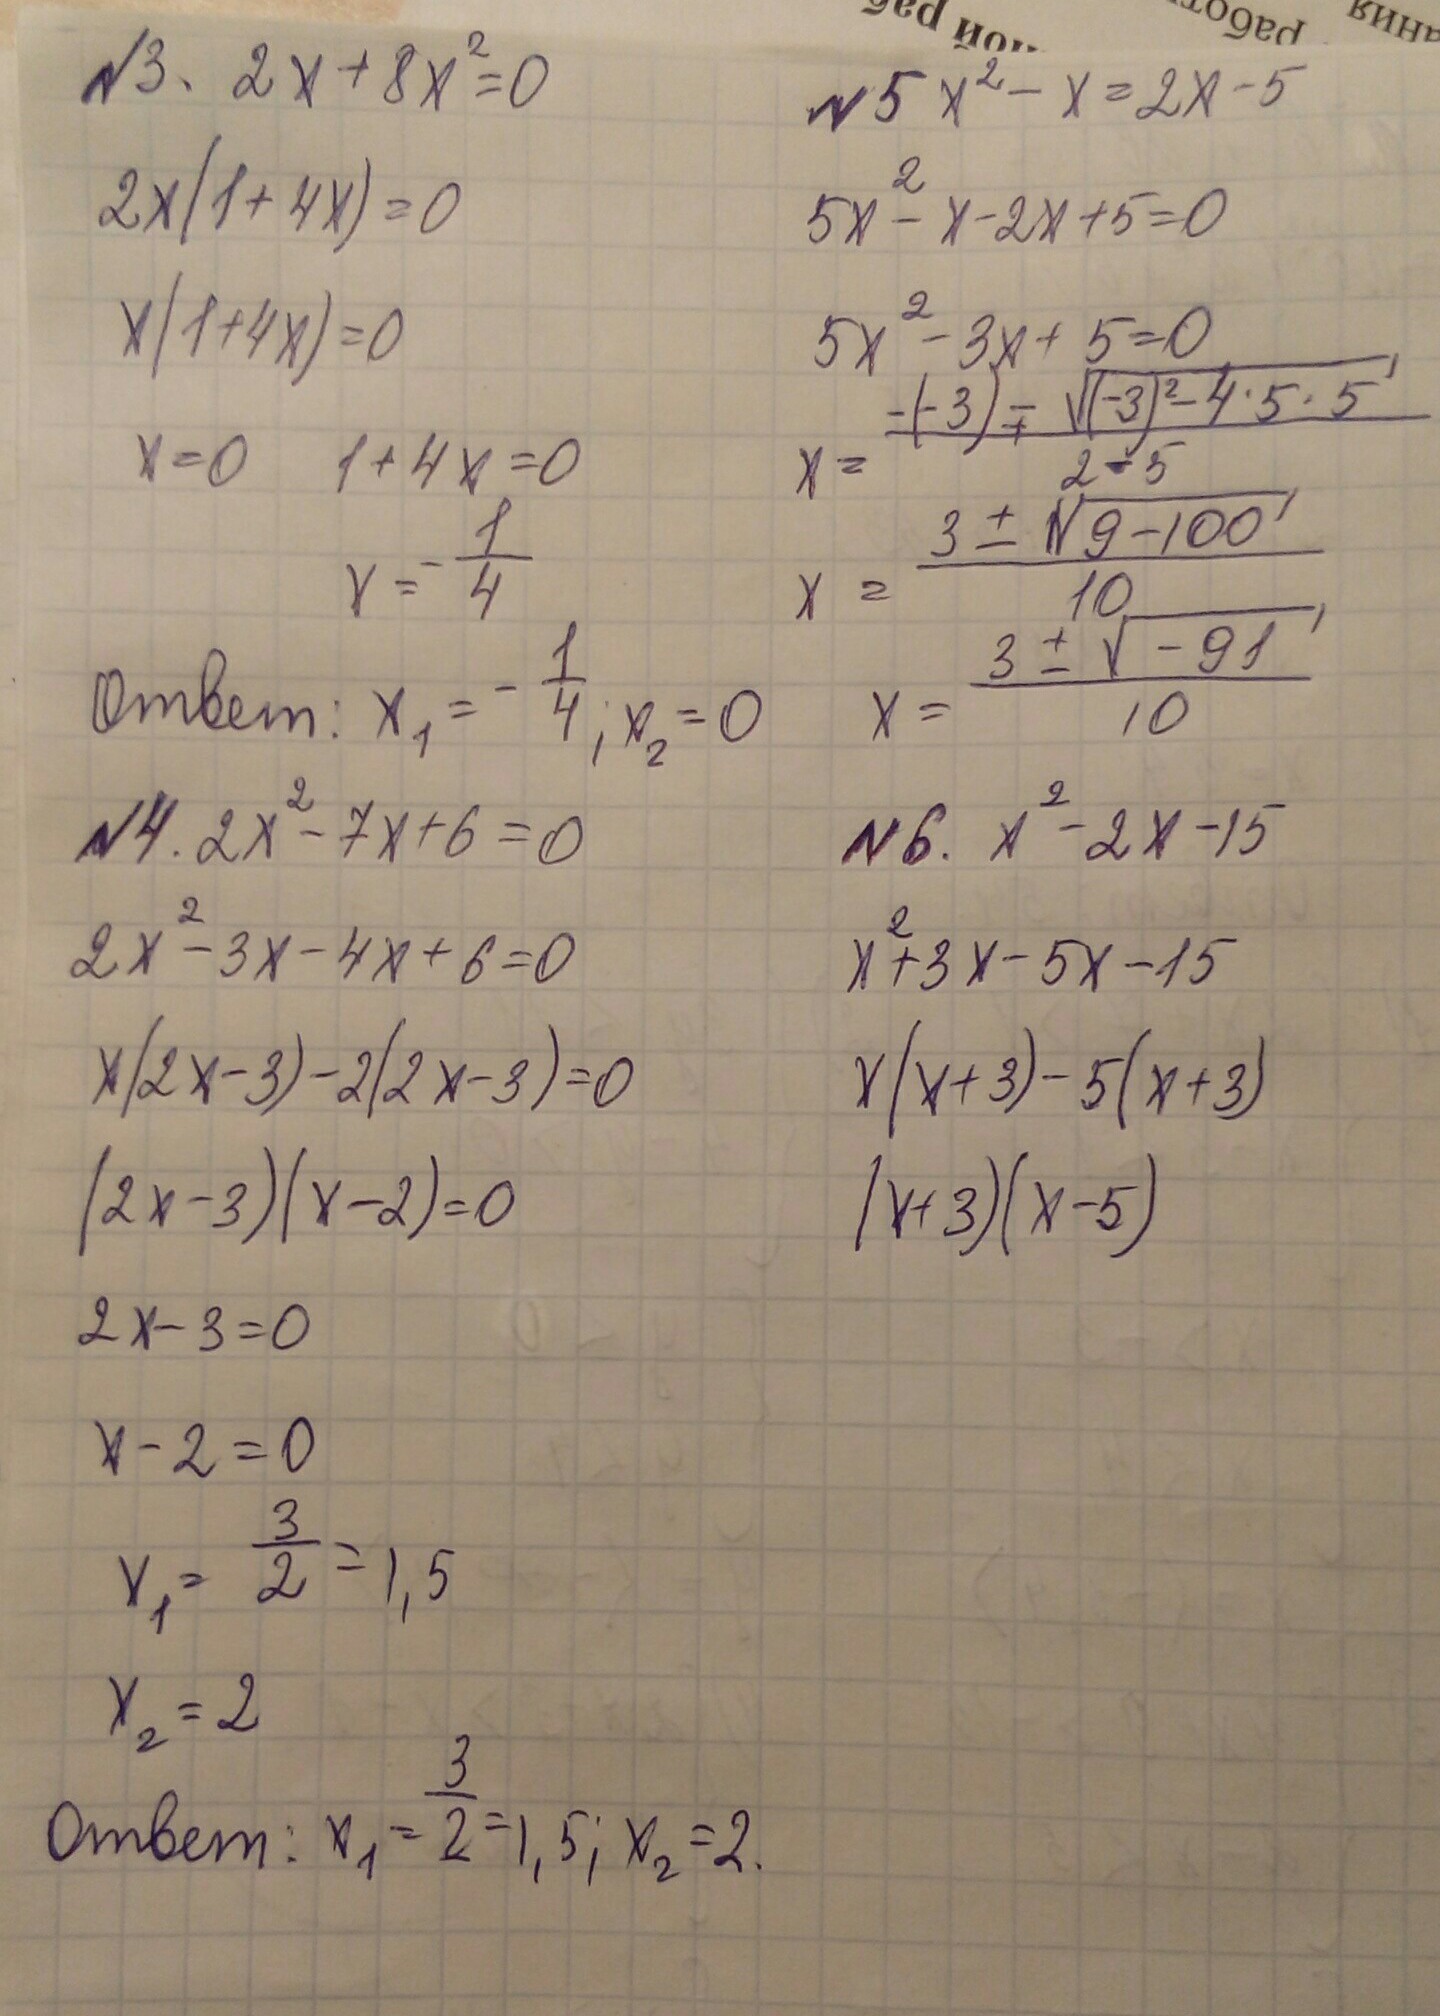 ной раб
работ
ания
№3. 2x+8x²=0
2x(1+4x)=0
x(1+4x)=0
x=0 1+4x=0
x=-1/4
Ответ: x₁=-1/4; x₂=0
№4. 2x²-7x+6=0
2x²-3x-4x+6=0
x(2x-3)-2(2x-3)=0
(2x-3)(x-2)=0
2x-3=0
x-2=0
x₁=3/2=1,5
x₂=2
Ответ: x₁=3/2=1,5; x₂=2.
№5 x²-x=2x-5
5x²-x-2x+5=0
5x²-3x+5=0
x=(-(-3)∓√((-3)²-4·5·5))/(2·5)
x=(3±√(9-100))/10
x=(3±√(-91))/10
№6. x²-2x-15
x²+3x-5x-15
x(x+3)-5(x+3)
(x+3)(x-5)